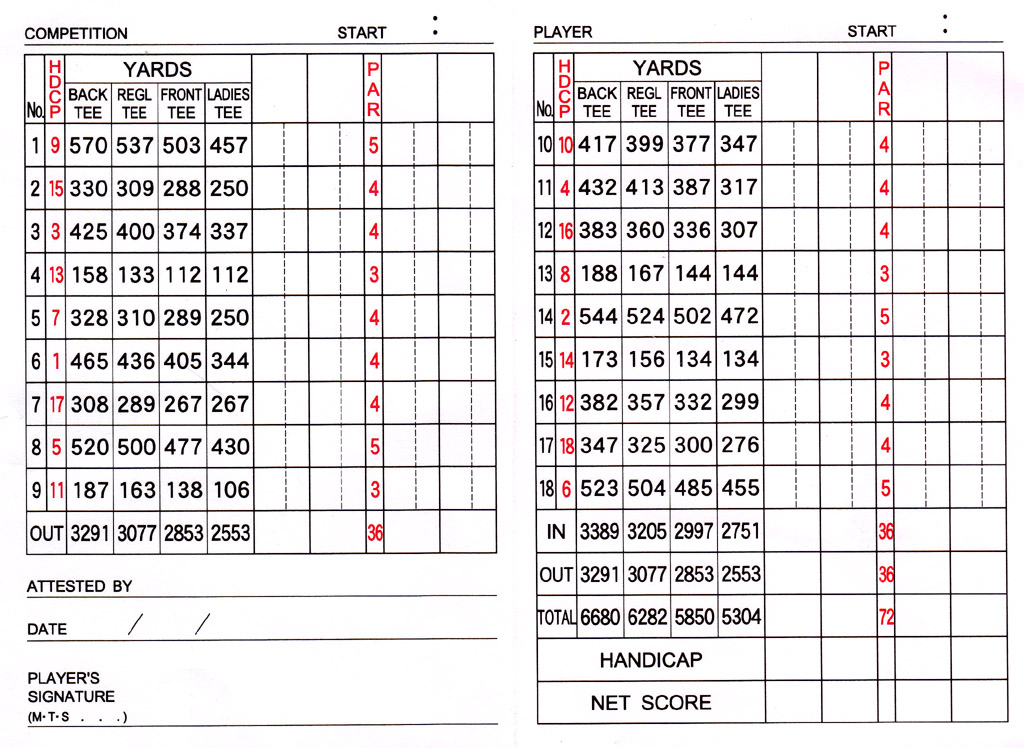 COMPETITION START :
No. HDCP YARDS PAR
BACK TEE REGL TEE FRONT TEE LADIES TEE
1 9 570 537 503 457 5
2 15 330 309 288 250 4
3 3 425 400 374 337 4
4 13 158 133 112 112 3
5 7 328 310 289 250 4
6 1 465 436 405 344 4
7 17 308 289 267 267 4
8 5 520 500 477 430 5
9 11 187 163 138 106 3
OUT 3291 3077 2853 2553 36
ATTESTED BY
DATE / /
PLAYER'S
SIGNATURE
(M·T·S . . .)
PLAYER START :
No. HDCP YARDS PAR
BACK TEE REGL TEE FRONT TEE LADIES TEE
10 10 417 399 377 347 4
11 4 432 413 387 317 4
12 16 383 360 336 307 4
13 8 188 167 144 144 3
14 2 544 524 502 472 5
15 14 173 156 134 134 3
16 12 382 357 332 299 4
17 18 347 325 300 276 4
18 6 523 504 485 455 5
IN 3389 3205 2997 2751 36
OUT 3291 3077 2853 2553 36
TOTAL 6680 6282 5850 5304 72
HANDICAP
NET SCORE